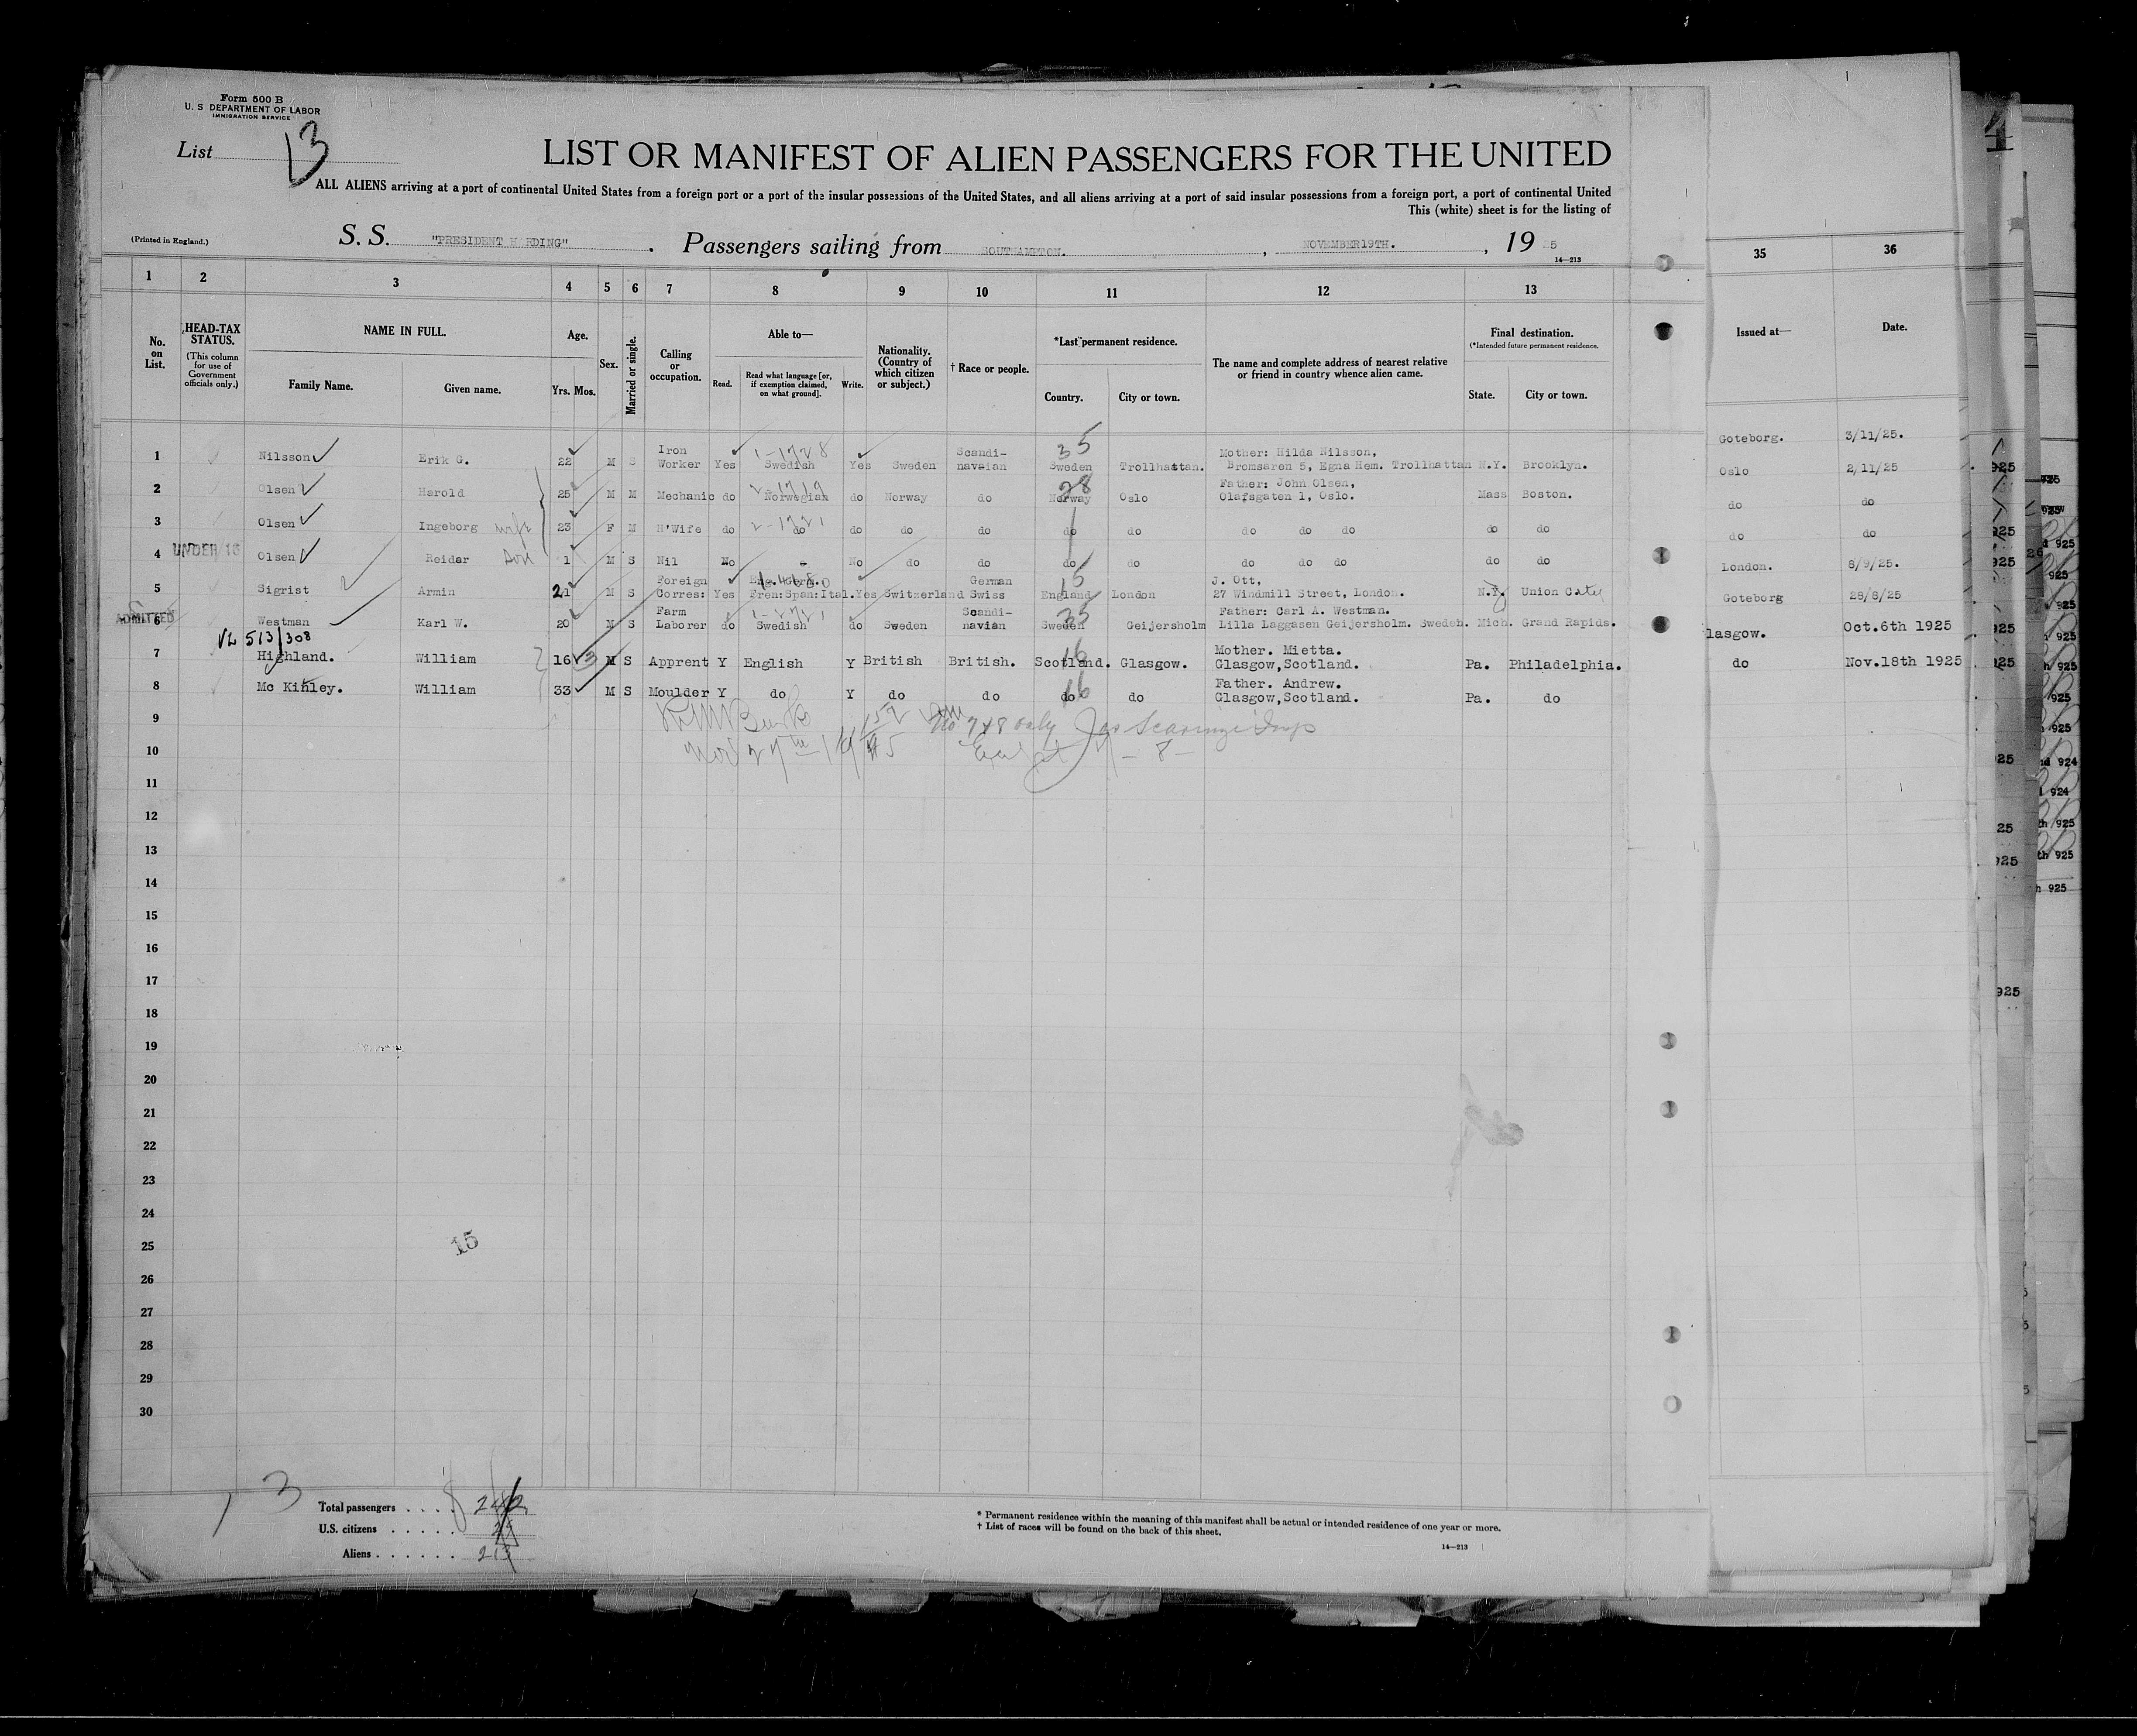 Form 500 B
U. S DEPARTMENT OF LABOR
IMMIGRATION SERVICE
List 13
LIST OR MANIFEST OF ALIEN PASSENGERS FOR THE UNITED
ALL ALIENS arriving at a port of continental United States from a foreign port or a port of the insular possessions of the United States, and all aliens arriving at a port of said insular possessions from a foreign port, a port of continental United
This (white) sheet is for the listing of
(Printed in England.)
S. S. "PRESIDENT HARDING" . Passengers sailing from SOUTHAMPTON. , NOVEMBER19TH. , 19 25
14—213
1 2 3 4 5 6 7 8 9 10 11 12 13 35 36
No. on List.
HEAD-TAX STATUS.
(This column for use of Government officials only.)
NAME IN FULL.
Family Name. Given name.
Age.
Yrs. Mos.
Sex.
Married or single.
Calling or occupation.
Able to—
Read. Read what language [or, if exemption claimed, on what ground]. Write.
Nationality. (Country of which citizen or subject.)
† Race or people.
*Last permanent residence.
Country. City or town.
The name and complete address of nearest relative or friend in country whence alien came.
Final destination.
(*Intended future permanent residence.
State. City or town.
Issued at— Date.
1 Nilsson Erik G. 22 M S Iron Worker Yes Swedish Yes Sweden Scandi-navaian Sweden Trollhattan. Mother: Hilda Nilsson, Bromsaren 5, Egna Hem. Trollhattan N.Y. Brooklyn. Goteborg. 3/11/25.
2 Olsen Harold 25 M M Mechanic do Norwegian do Norway do Norway Oslo Father: John Olsen, Olafsgaten 1, Oslo. Mass Boston. Oslo 2/11/25
3 Olsen Ingeborg wife 23 F M H'Wife do do do do do do do do do do do do do do
4 UNDER 16 Olsen Reidar Son 1 M S Nil No - No do do do do do do do do do do do
5 Sigrist Armin 21 M S Foreign Corres: Yes Eng. Germ. Fren:Span:Ital. Yes Switzerland German Swiss England London J. Ott, 27 Windmill Street, London. N.Y. Union City London. 8/9/25.
ADMITTED
6 Westman Karl W. 20 M S Farm Laborer do Swedish do Sweden Scandi-navian Sweden Geijersholm Father: Carl A. Westman. Lilla Laggasen Geijersholm. Sweden. Mich. Grand Rapids. Goteborg 28/8/25
VL 513/308
7 Highland. William 16 3 M S Apprent Y English Y British British. Scotland. Glasgow. Mother. Mietta. Glasgow,Scotland. Pa. Philadelphia. lasgow. Oct.6th 1925
8 Mc Kinley. William 33 M S Moulder Y do Y do do do do Father. Andrew. Glasgow,Scotland. Pa. do do Nov.18th 1925
9
10
11
12
13
14
15
16
17
18
19
20
21
22
23
24
25
15
26
27
28
29
30
13
Total passengers . . . .
U.S. citizens . . . . .
Aliens . . . . . . . 213
* Permanent residence within the meaning of this manifest shall be actual or intended residence of one year or more.
† List of races will be found on the back of this sheet.
14—213